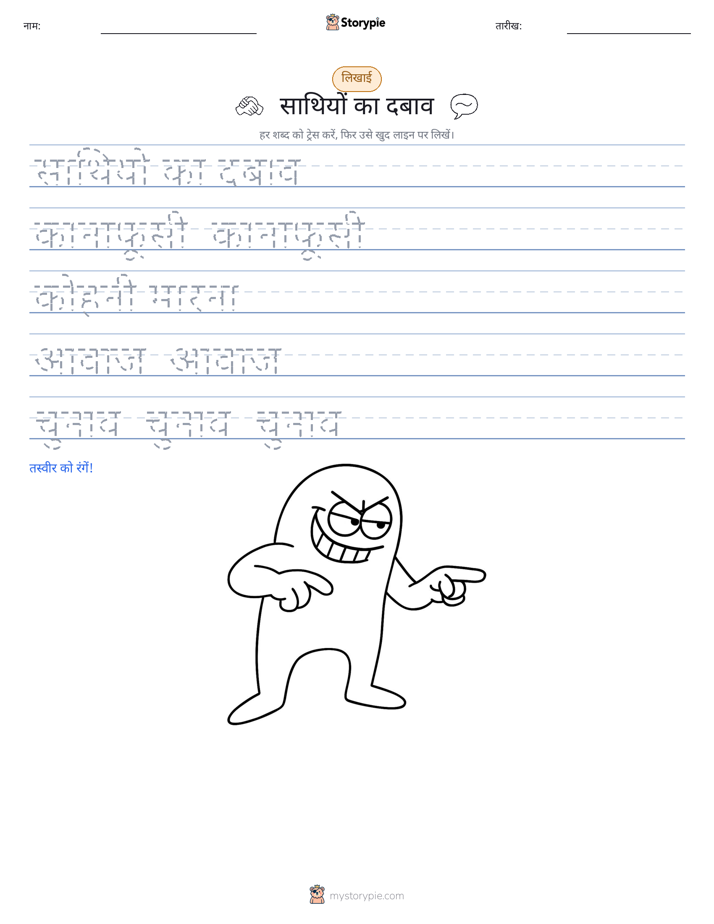 नाम:
Storypie
तारीख:
लिखाई
साथियों का दबाव
हर शब्द को ट्रेस करें, फिर उसे खुद लाइन पर लिखें।
साथियों का दबाव
कानाफूसी कानाफूसी
कोहनी मारना
आवाज आवाज
चुनाव चुनाव चुनाव
तस्वीर को रंगें!
mystorypie.com